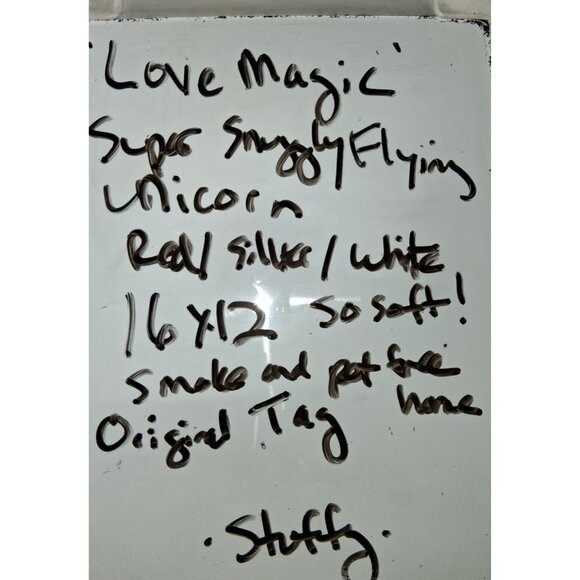 'Love Magic'
Super Snuggly Flying
Unicorn
Red/Silver/White
16x12 so soft!
smoke and pet free
home
Original Tag
. Stuffy.